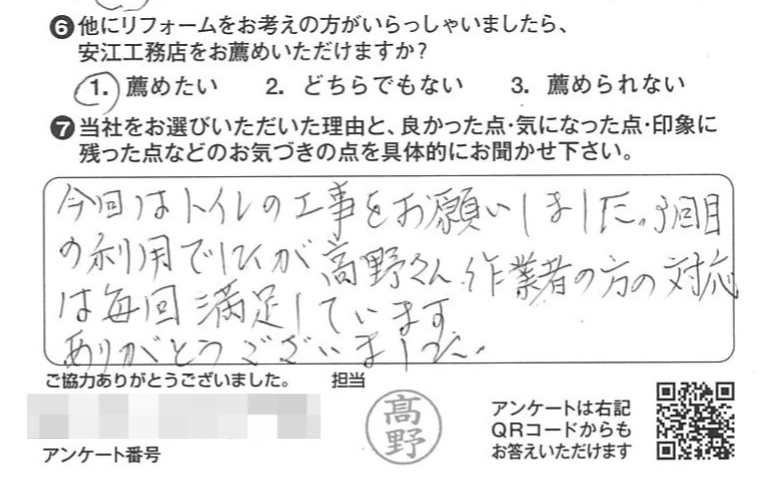 ❻他にリフォームをお考えの方がいらっしゃいましたら、
安江工務店をお薦めいただけますか?
1. 薦めたい 2. どちらでもない 3. 薦められない
❼当社をお選びいただいた理由と、良かった点・気になった点・印象に
残った点などのお気づきの点を具体的にお聞かせ下さい。
今回はトイレの工事をお願いしました。3回目
の利用でしたが高野さん、作業者の方の対応
は毎回満足しています
ありがとうございました。
ご協力ありがとうございました。 担当
高野
アンケート番号
アンケートは右記
QRコードからも
お答えいただけます